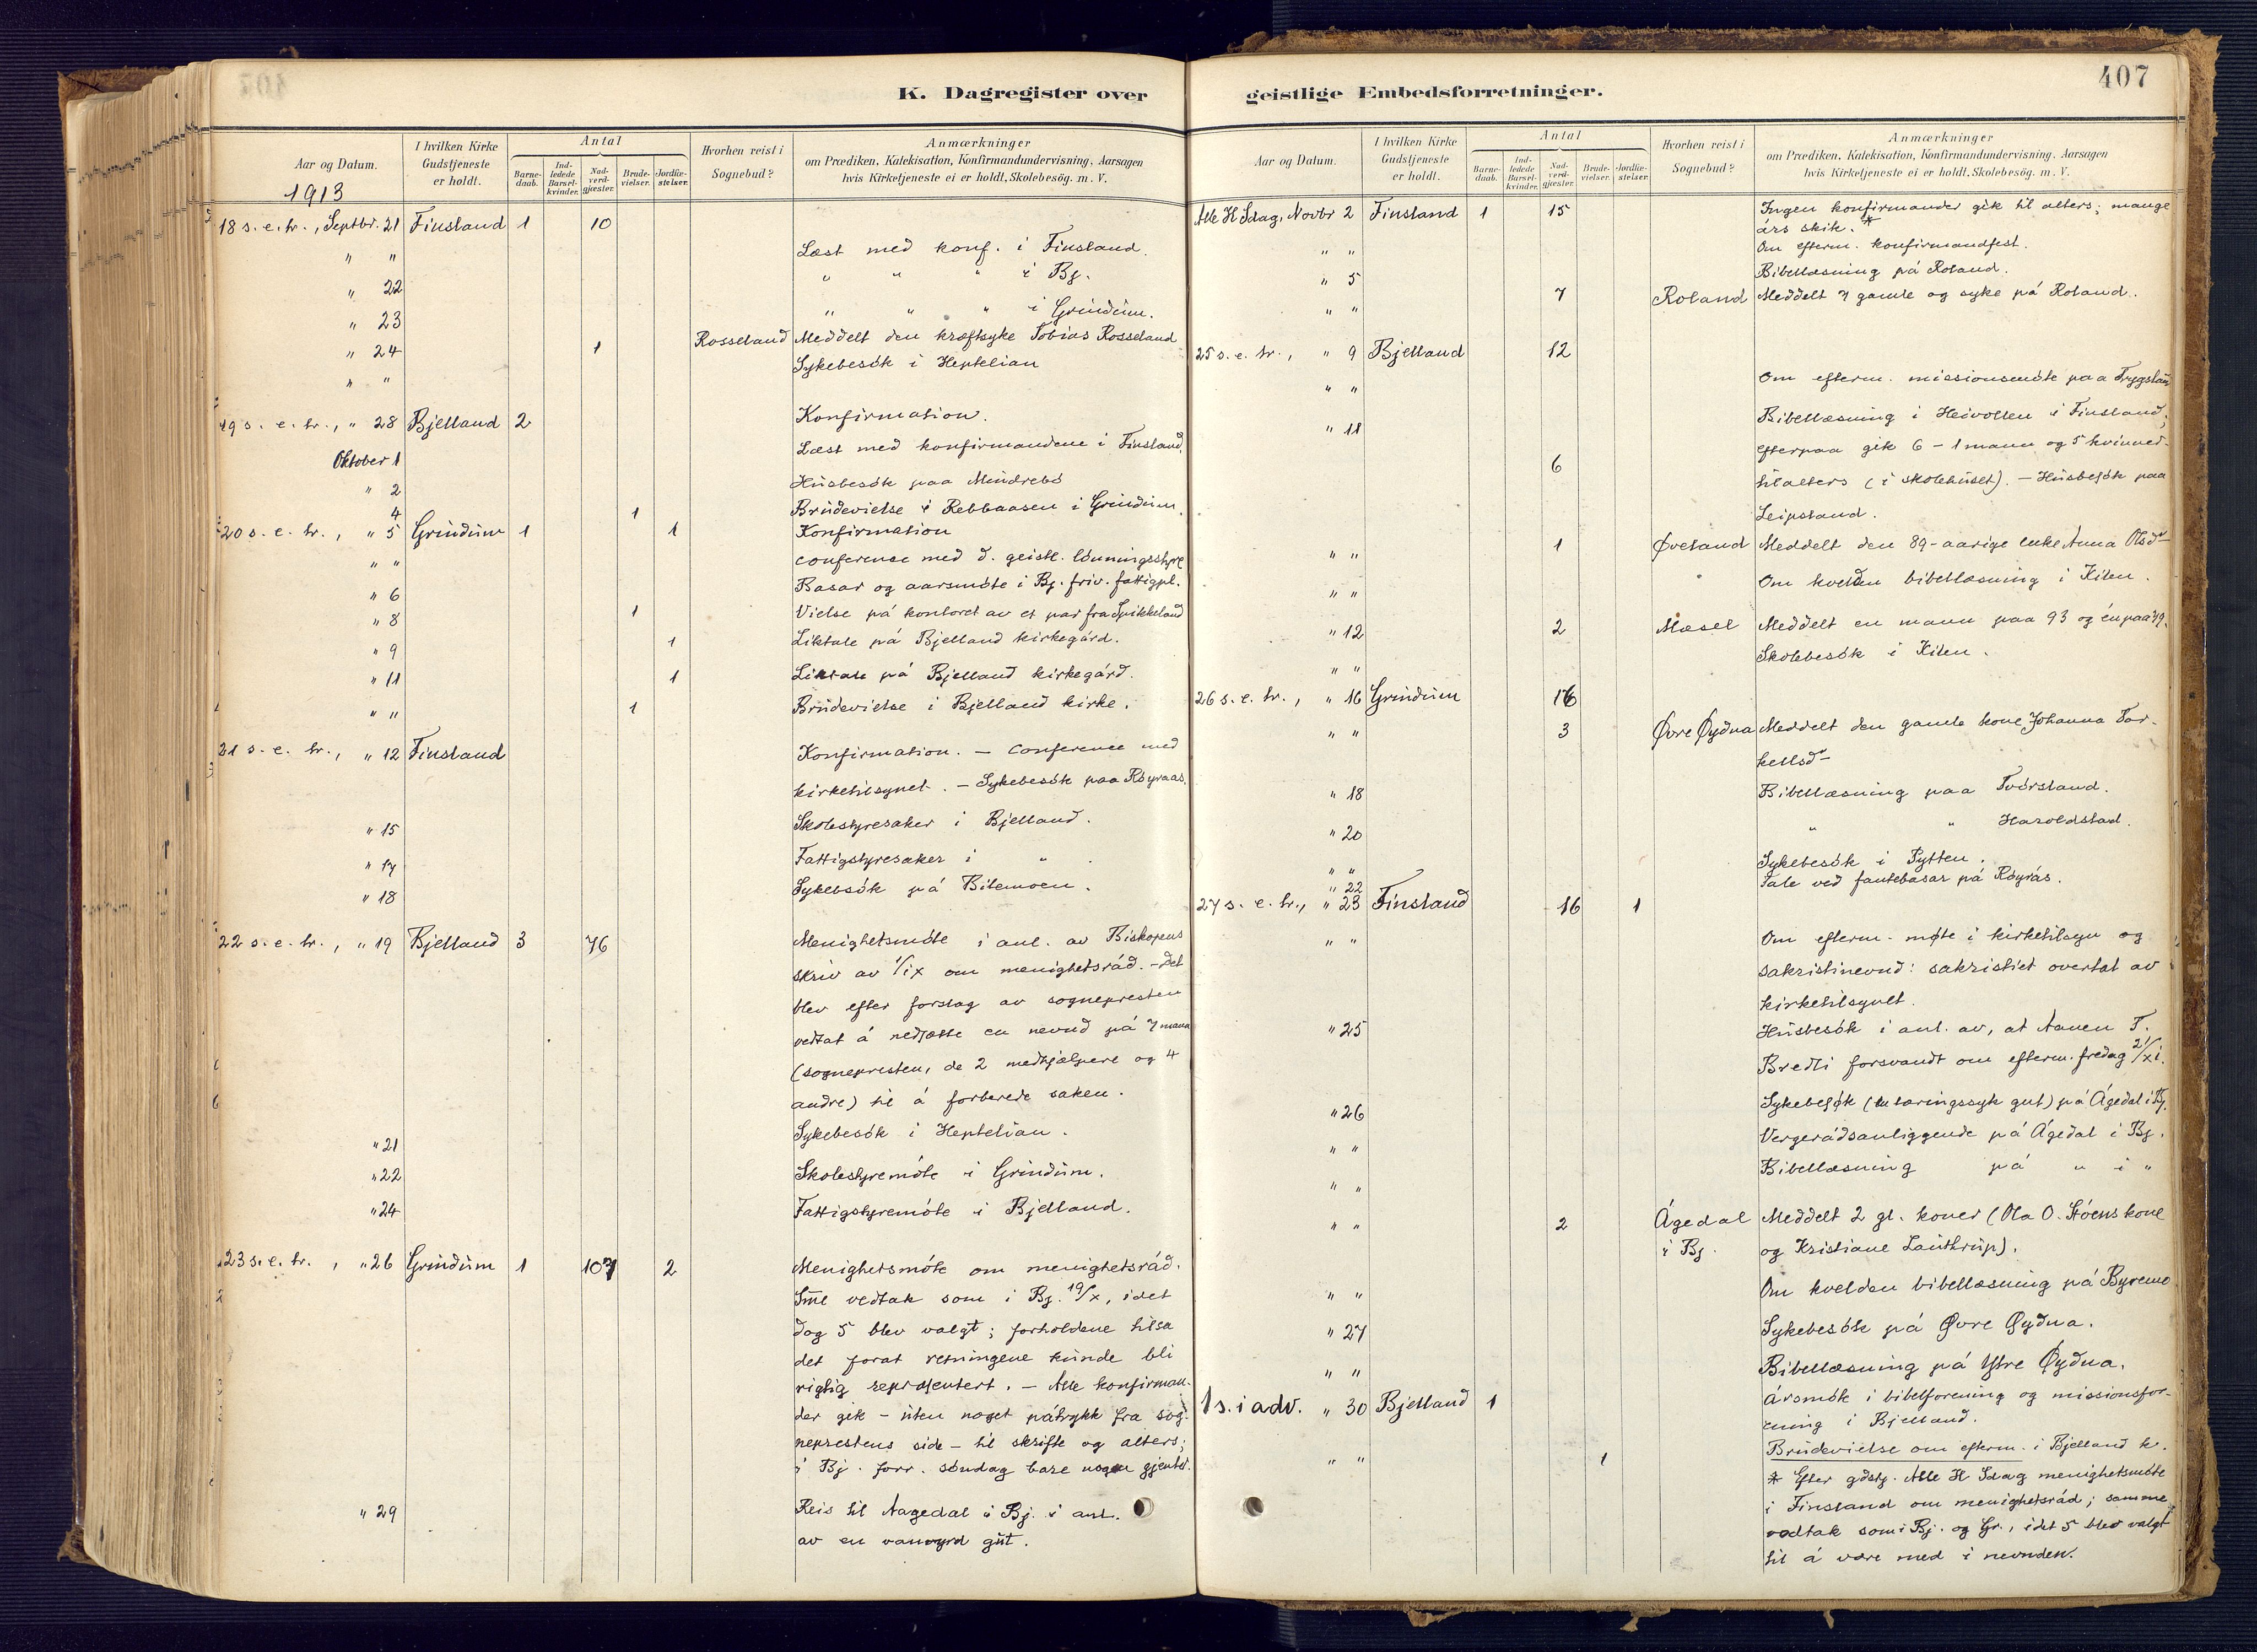 407
K. Dagregister over
geistlige Embedsforretninger.
Aar og Datum.
I hvilken Kirke Gudstjeneste er holdt.
Antal
Barnedaab.
Indledede Barselkvinder.
Nadverdgjæster.
Brudevielser.
Jordfæstelser.
Hvorhen reist i Sognebud?
Anmærkninger
om Prædiken, Katekisation, Konfirmandundervisning. Aarsagen
hvis Kirketjeneste ei er holdt. Skolebesög. m. V.
1913
18 s. e. tr., Septbr. 21 Finsland 1 10
" " Læst med konf. i Finsland.
" 22 " " " i Bj.
" 23 " " " i Grindum.
" 24 1 Rosseland Meddelt den kræftsyke Tobias Rosseland
" " Sykebesök i Heptelian
19 s. e. tr., " 28 Bjelland 2 Konfirmation.
Oktober 1 Læst med konfirmandene i Finsland.
" 2 Husbesök paa Mindrebö
4 1 Brudevielse i Rebbaasen i Grindum.
20 s. e. tr., " 5 Grindum 1 1 Konfirmation
" " conferense med d. geistl. lönningsstyre
" 6 Basar og aarsmöte i Bj. friv. fattigpl.
" 8 1 Vielse på kontoret av et par fra Spikkeland
" 9 1 Liktale på Bjelland kirkegård.
" 11 1 Liktale på Bjelland kirkegård.
" " 1 Brudevielse i Bjelland kirke.
21 s. e. tr., " 12 Finsland Konfirmation. – Conference med
kirketilsynet. – Sykebesök paa Röyraas.
" 15 Skolestyresaker i Bjelland.
" 17 Fattigstyresaker i " .
" 18 Sykebsök på Bilemoen.
22 s. e. tr., " 19 Bjelland 3 76 Menighetsmöte i anl. av Biskopens
skriv av 1/ix om menighetsråd. – Det
blev efter forslag av sognepresten
vedtat å nedsætte en nevnd på 7 mann
(sognepresten, de 2 medhjælpere og 4
andre) til å forberede saken.
" 21 Sykebesök i Heptelian.
" 22 Skolestyremöte i Grindum.
" 24 Fattigstyremöte i Bjelland.
23 s. e. tr., " 26 Grindum 1 107 2 Menighetsmöte om menighetsråd.
Sme vedtak som i Bj. 19/x, idet
dog 5 blev valgt; forholdene tilsa
det forat retningene kunde bli
rigtig repræsentert. – Alle konfirman-
der gik – uten noget påtrykk fra sog-
neprestens side – til skrifte og alters;
i Bj. forr. söndag bare nogen gjenter.
" 29 Reis til Aagedal i Bj. i anl.
av en vanvyrd gut.
Aar og Datum.
I hvilken Kirke Gudstjeneste er holdt.
Antal
Barnedaab.
Indledede Barselkvinder.
Nadverdgjæster.
Brudevielser.
Jordfæstelser.
Hvorhen reist i Sognebud?
Anmærkninger
om Prædiken, Katekisation, Konfirmandundervisning. Aarsagen
hvis Kirketjeneste ei er holdt. Skolebesög. m. V.
Alle H Sdag, Novbr 2 Finsland 1 15 Ingen konfirmander gik til alters; mange
års skik. *
" " Om efterm. konfirmandfest.
" 5 Bibellæsning på Roland.
" " 7 Roland Meddelt 7 gamle og syke på Roland.
25 s. e. tr., " 9 Bjelland 12
" " Om efterm. missionsmöte paa Trygsland
" 11 Bibellæsning i Heivollen i Finsland;
efterpaa gik 6 – 1 mann og 5 kvinner –
6 til alters (i skolehuset). – Husbesök paa
Leipsland.
" " 1 Øveland Meddelt den 89-aarige enke Anna Olsdr
" " Om kvelden bibellæsning i Kilen.
" 12 2 Mæsel Meddelt en mann paa 93 og én paa 79.
" " Skolebesök i Kilen.
26 s. e. tr., " 16 Grindum 16
" " 3 Øvre Øydna Meddelt den gamle kone Johanna Tor-
kellsdr
" 18 Bibellæsning paa Tvörsland.
" 20 " " Haroldstad.
" " Sykebesök i Pytten.
" 22 Tale ved fantebasar på Röyrås.
27 s. e. tr., " 23 Finsland 16 1
" " Om efterm. møte i kirketilsyn og
sakristinevnd: sakristiet overtat av
kirketilsynet.
" 25 Husbesök i anl. av, at Aanen T.
Bredli forsvandt om efterm. fredag 21/xi.
" 26 Sykebesøk (tæringssyk gut) på Ågedal i Bj.
" " Vergerådsanliggende på Ågedal i Bj.
" " Bibellæsning på " i "
" " 2 Ågedal i Bj. Meddelt 2 gl. koner (Ola O. Stöens kone
og Kristiane Lauthrup).
" " Om kvelden bibellæsning på Byremo
" 27 Sykebesök på Øvre Øydna.
" " Bibellæsning på Ytre Øydna.
1 s. i adv. " 30 Bjelland 1 Årsmöte i bibelforening og missionsfor-
ening i Bjelland.
" " 1 Brudevielse om efterm. i Bjelland k.
* Efter gdstj. Alle H Sdag menighetsmöte
i Finsland om menighetsråd; samme
vedtak som i Bj. og Gr., idet 5 blev valgt
til å være med i nevnden.